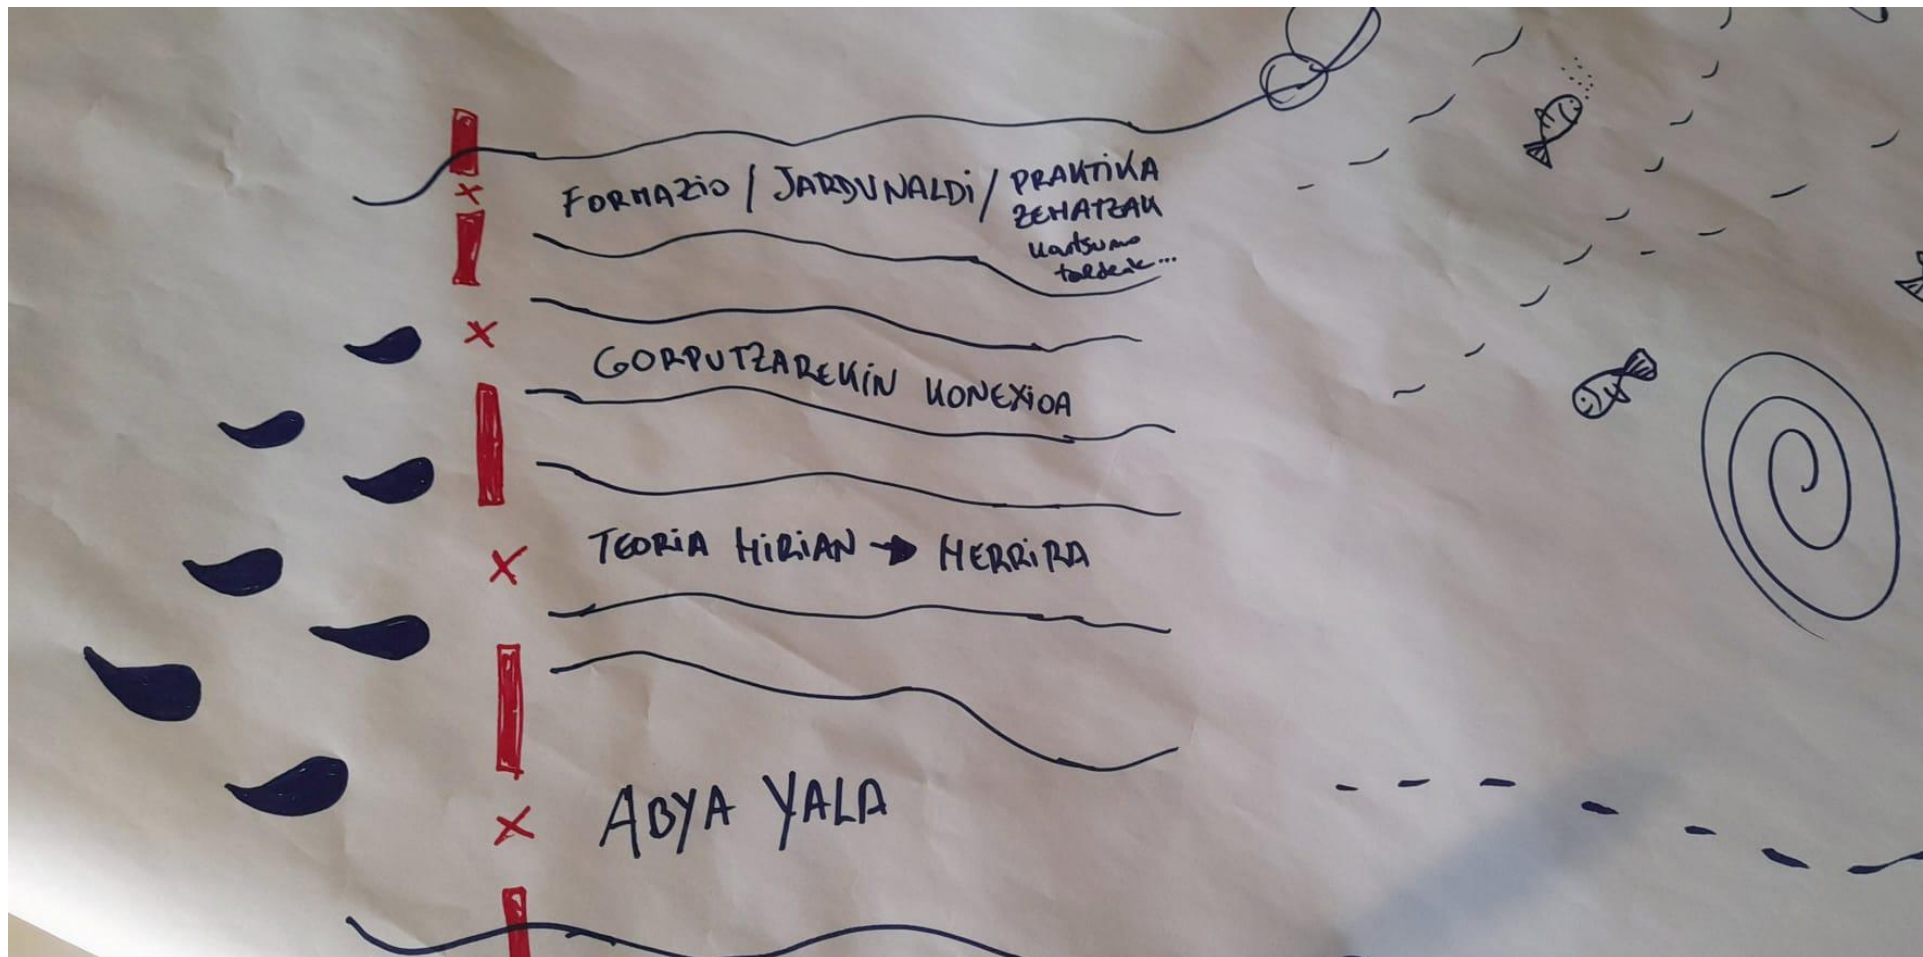 FORMAZIO / JARDUNALDI / PRAKTIKA
ZEHATZAK
kontsumo
taldeak...
GORPUTZAREKIN KONEXIOA
TEORIA HIRIAN → HERRIRA
ABYA YALA